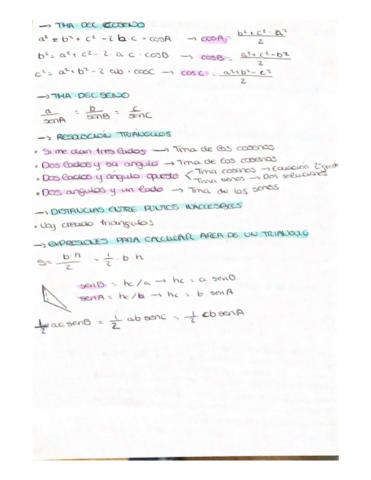 → TMA DEL COSENO
a² = b² + c² - 2 b·c · cosA → cosA = b² + c² - a² / 2
b² = a² + c² - 2·a·c·cosB → cosB = a² + c² - b² / 2
c² = a² + b² - 2 ab·cosC → cosC = a² + b² - c² / 2
→ TMA DEL SENO
a / senA = b / senB = c / senC
→ RESOLUCIÓN TRIÁNGULOS
• Si me dan tres lados → Tma de los cosenos
• Dos lados y su angulo → Tma de los cosenos
• Dos lados y angulo opuesto Tma cosenos → Ecuación 2º grado
Tma senos → Dos soluciones
• Dos angulos y un lado → Tma de los senos
→ DISTANCIAS ENTRE PUNTOS INACCESIBLES
• Voy creando triángulos
→ EXPRESIONES PARA CALCULAR AREA DE UN TRIANGULO
S = b·h / 2 = 1/2 · b·h
senB = hc/a → hc = a senB
senA = hc/b → hc = b senA
1/2 ac senB = 1/2 ab senC = 1/2 cb senA